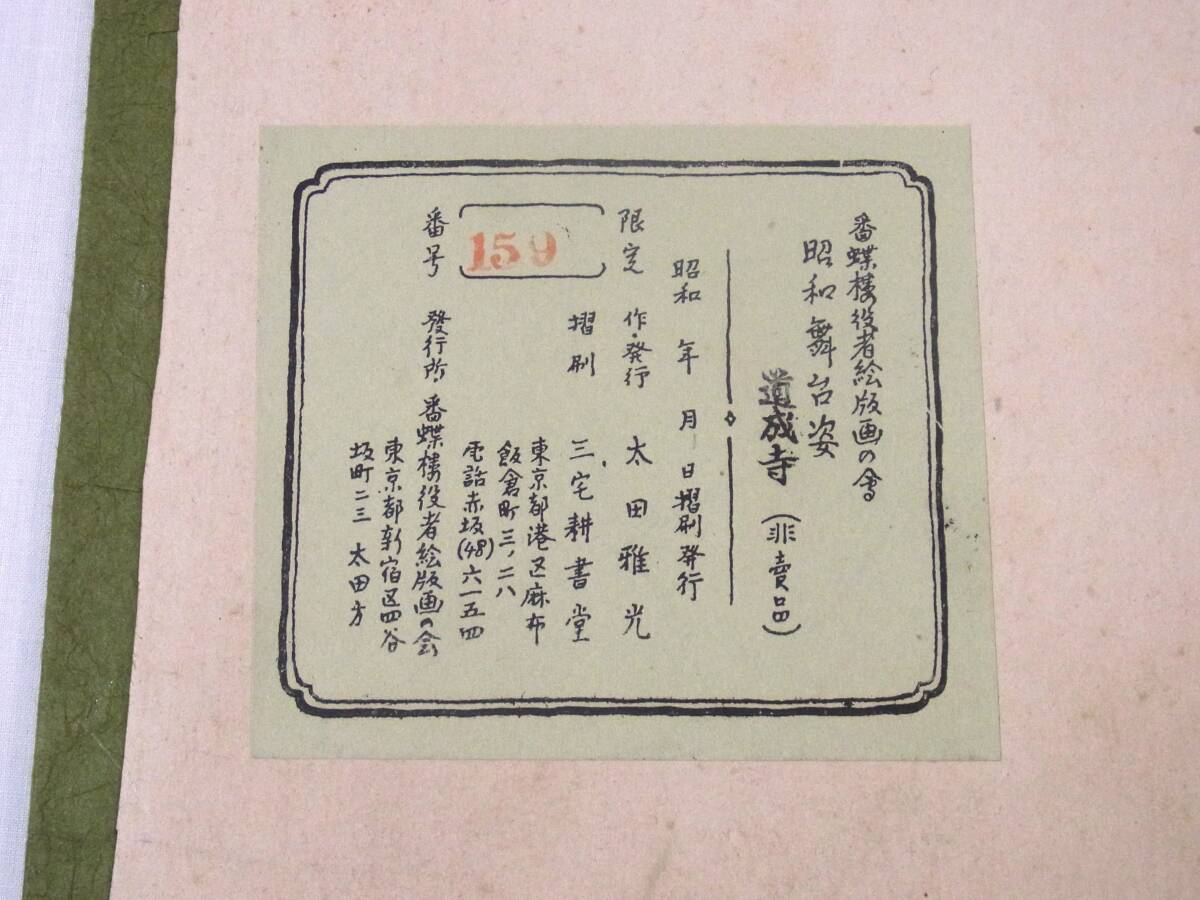 番蝶楼役者絵版画の會
昭和舞台姿
道成寺（非賣品）
昭和　年　月　日摺刷発行
限定　作・発行　太田雅光
159
摺刷　三宅耕書堂
東京都港区麻布
飯倉町三ノ二八
電話赤坂(48)六一五四
番号　發行所　番蝶楼役者絵版画の会
東京都新宿区四谷
坂町二三　太田方